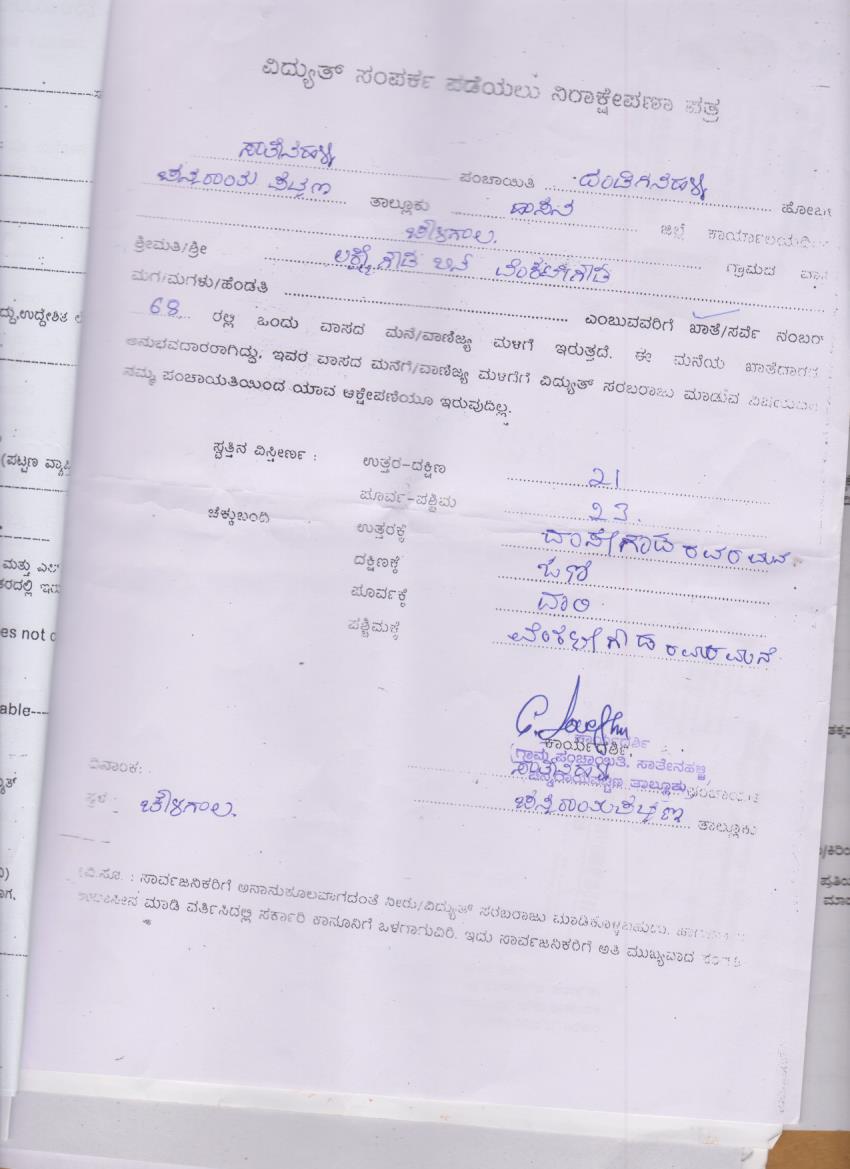 ವಿದ್ಯುತ್ ಸಂಪರ್ಕ ಪಡೆಯಲು ನಿರಾಕ್ಷೇಪಣಾ ಪತ್ರ
ಸಾತೇನಹಳ್ಳಿ ಪಂಚಾಯಿತಿ ದಂಡಿಗನಹಳ್ಳಿ ಹೋಬಳಿ
ಚನ್ನರಾಯ ಪಟ್ಟಣ ತಾಲ್ಲೂಕು ಹಾಸನ ಜಿಲ್ಲೆ ಕಾರ್ಯಾಲಯದಿಂದ
ಚೌಳಗಾಲ. ಗ್ರಾಮದ ವಾಸಿ
ಶ್ರೀಮತಿ/ಶ್ರೀ ಲಕ್ಷ್ಮೇಗೌಡ ಬಿನ್ ವೆಂಕಟೇಗೌಡ
ಮಗ/ಮಗಳು/ಹೆಂಡತಿ ಎಂಬುವವರಿಗೆ ಖಾತೆ/ಸರ್ವೆ ನಂಬರ್
68 ರಲ್ಲಿ ಒಂದು ವಾಸದ ಮನೆ/ವಾಣಿಜ್ಯ ಮಳಗೆ ಇರುತ್ತದೆ. ಈ ಮನೆಯ
ಅನುಭವದಾರರಾಗಿದ್ದು, ಇವರ ವಾಸದ ಮನೆಗೆ/ವಾಣಿಜ್ಯ ಮಳಗೆಗೆ ವಿದ್ಯುತ್ ಸರಬರಾಜು ಮಾಡುವ
ನಮ್ಮ ಪಂಚಾಯತಿಯಿಂದ ಯಾವ ಆಕ್ಷೇಪಣೆಯೂ ಇರುವುದಿಲ್ಲ.
ಸ್ವತ್ತಿನ ವಿಸ್ತೀರ್ಣ : ಉತ್ತರ-ದಕ್ಷಿಣ 21
ಪೂರ್ವ-ಪಶ್ಚಿಮ 23.
ಚೆಕ್ಕುಬಂದಿ ಉತ್ತರಕ್ಕೆ ರವರ ಮನೆ
ದಕ್ಷಿಣಕ್ಕೆ ಓಣಿ
ಪೂರ್ವಕ್ಕೆ ದಾರಿ
ಪಶ್ಚಿಮಕ್ಕೆ ವೆಂಕಟೇಗೌಡ ರವರ ಮನೆ
ಕಾರ್ಯದರ್ಶಿ
ಕಾರ್ಯದರ್ಶಿ,
ಗ್ರಾಮ ಪಂಚಾಯಿತಿ, ಸಾತೇನಹಳ್ಳಿ
ದಿನಾಂಕ: ಸಾತೇನಹಳ್ಳಿ
ಚನ್ನರಾಯಪಟ್ಟಣ ತಾಲ್ಲೂಕು
ಸ್ಥಳ : ಚೌಳಗಾಲ. ಚನ್ನರಾಯಪಟ್ಟಣ ತಾಲ್ಲೂಕು
(ವಿ.ಸೂ. : ಸಾರ್ವಜನಿಕರಿಗೆ ಅನಾನುಕೂಲವಾಗದಂತೆ ನೀರು/ವಿದ್ಯುತ್ ಸರಬರಾಜು ಮಾಡಿಕೊಳ್ಳಬಹುದು.
ಉದಾಸೀನ ಮಾಡಿ ವರ್ತಿಸಿದಲ್ಲಿ ಸರ್ಕಾರಿ ಕಾನೂನಿಗೆ ಒಳಗಾಗುವಿರಿ. ಇದು ಸಾರ್ವಜನಿಕರಿಗೆ ಅತಿ ಮುಖ್ಯವಾದ